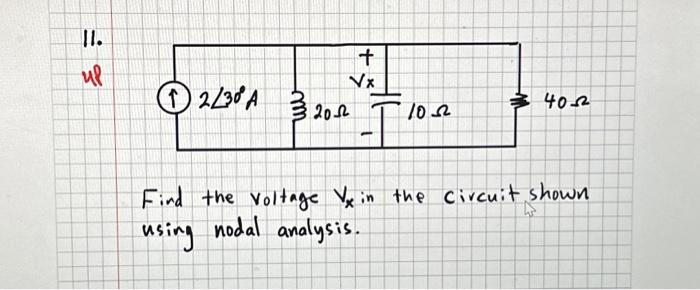 11.
up
2∠30° A
20Ω
+
Vx
-
10Ω
40Ω
Find the voltage Vx in the circuit shown
using nodal analysis.